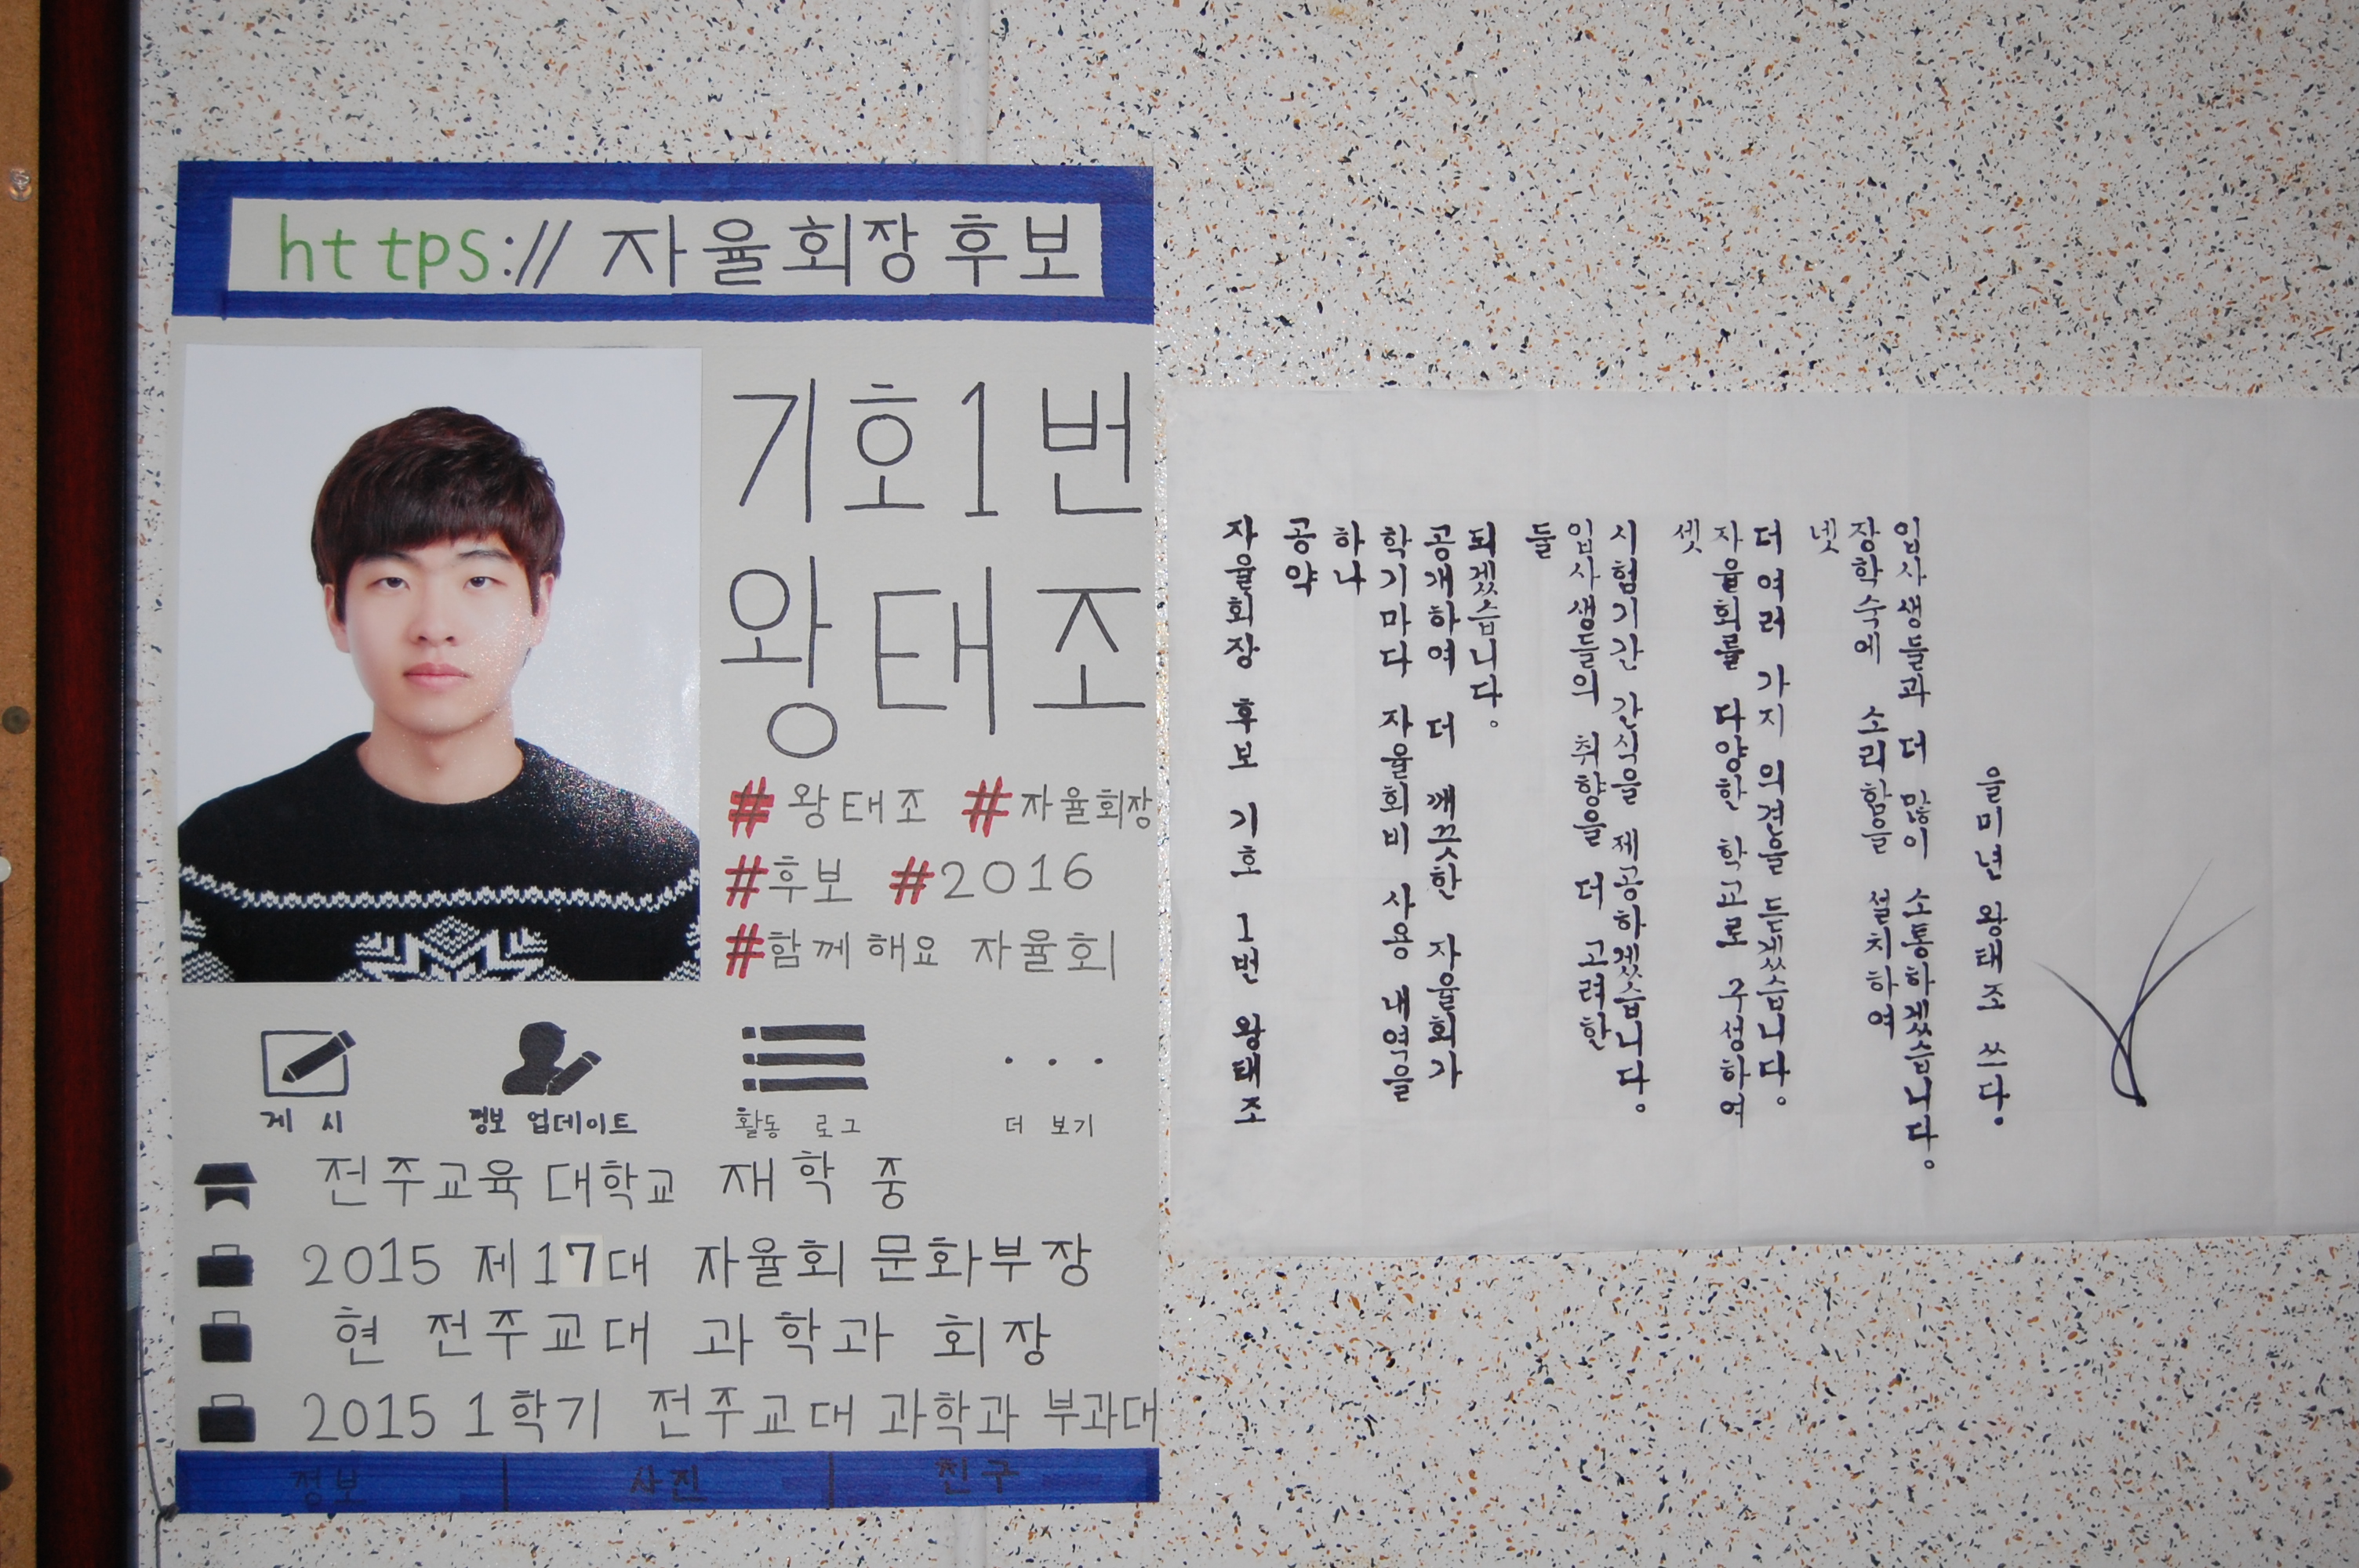 https:// 자율회장후보
기호1번
왕태조
# 왕태조 # 자율회장
#후보 #2016
#함께해요 자율회
게시 정보 업데이트 활동 로그 더 보기
전주교육대학교 재학 중
2015 제17대 자율회 문화부장
현 전주교대 과학과 회장
2015 1학기 전주교대 과학과 부과대
정보 사진 친구
자율회장 후보 기호 1번 왕태조
공약
하나
학기마다 자율회비 사용 내역을
공개하여 더 깨끗한 자율회가
되겠습니다.
둘
입사생들의 취향을 더 고려한
시험기간 간식을 제공하겠습니다.
셋
자율회를 다양한
더 여러 가지
넷
장학사의
입사생들과 더 많이
을미년 왕태조 쓰다.